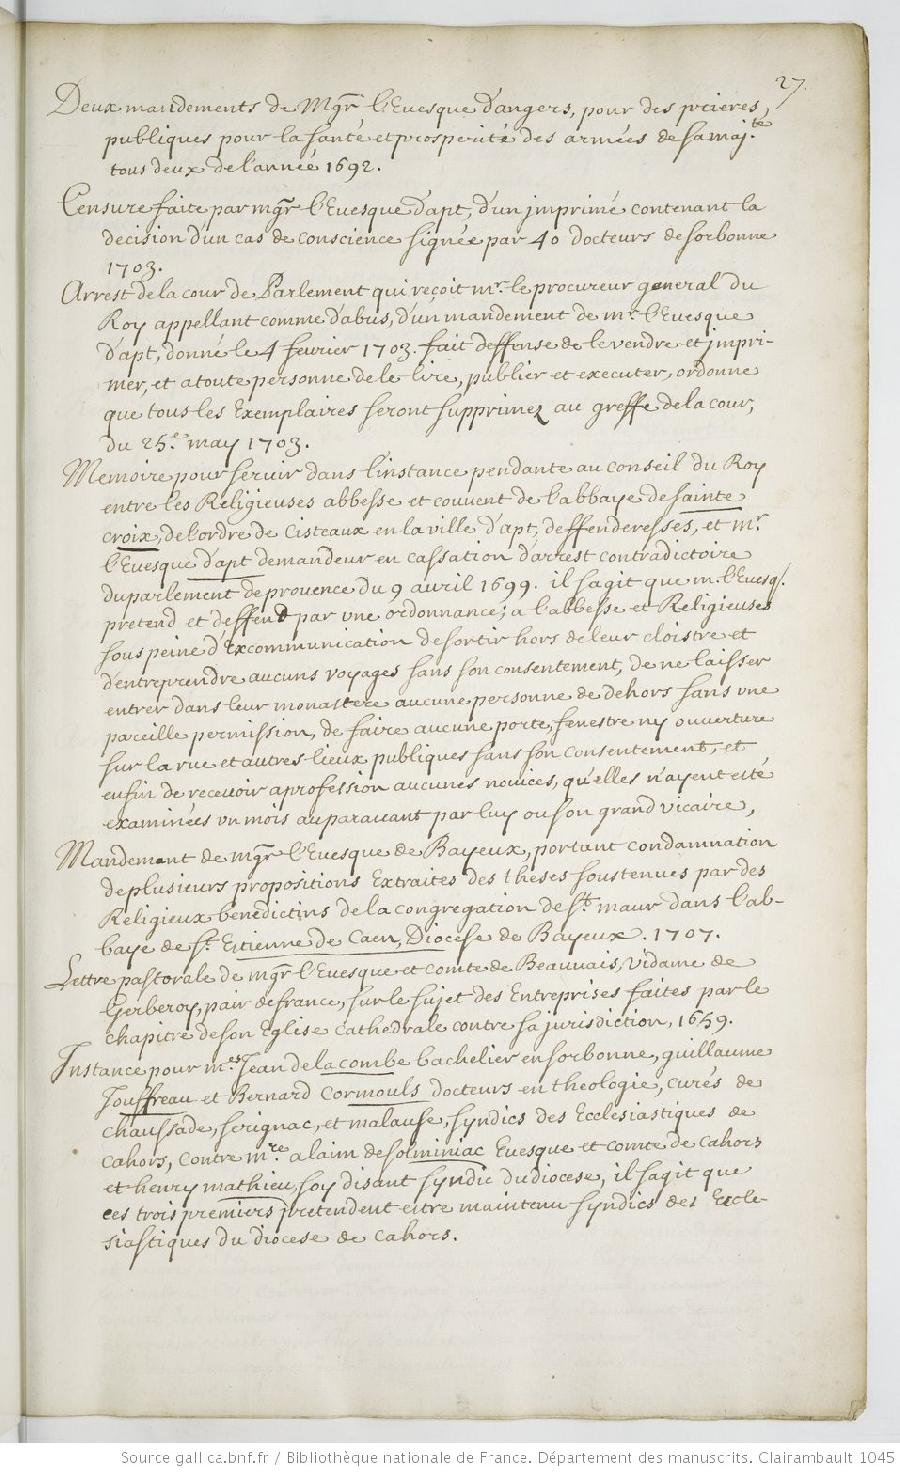 27.
Deux mandements de Mgr l'Evesque d'angers, pour des prieres
publiques pour la santé et prosperité des armées de sa maj.té
tous deux de l'année 1692.
Censure faite par mgr l'Evesque d'apt, d'un jmprimé contenant la
decision d'un cas de conscience signée par 40 docteurs de sorbonne
1703.
Arrest de la cour de Parlement qui reçoit mr. le procureur general du
Roy appellant comme d'abus, d'un mandement de mr. l'Evesque
d'apt, donné le 4 fevrier 1703. fait deffense de le vendre et jmpri-
mer, et a toute personne de le lire, publier et executer, ordonne
que tous les Exemplaires seront supprimez au greffe de la cour,
du 25e. may 1703.
Memoire pour servir dans l'instance pendante au conseil du Roy
entre les Religieuses abbesse et couvent de l'abbaye de sainte
croix, de l'ordre de Cisteaux en la ville d'apt, deffenderesses, et mr.
l'Evesque d'apt demandeur en cassation d'arrest contradictoire
du parlement de provence du 9 avril 1699. il s'agit que m. l'Evesq.
pretend et deffend par une ordonnance, a l'abbesse et Religieuses
sous peine d'Excommunication de sortir hors de leur cloistre et
d'entreprendre aucuns voyages sans son consentement, de ne laisser
entrer dans leur monastere aucune personne de dehors sans une
pareille permission, de faire aucune porte, fenestre ny ouverture
sur la rue et autres lieux publiques sans son consentement, et
enfin de recevoir a profession aucunes novices, qu'elles n'ayent esté
examinées un mois auparavant par luy ou son grand vicaire,
Mandement de mgr l'Evesque de Bayeux, portant condamnation
de plusieurs propositions Extraites des theses soustenues par des
Religieux benedictins de la congregation de St. maur dans l'ab-
baye de St. Etienne de Caen, Diocese de Bayeux. 1707.
Lettre pastorale de mgr l'Evesque et comte de Beauvais, Vidame de
Gerberoy, pair de france, sur le sujet des Entreprises faites par le
chapitre de son Eglise cathedrale contre sa jurisdiction, 1659.
Instance pour mes. Jean de la combe bachelier en sorbonne, guillaume
Jouffreau et Bernard Cormouls docteurs en theologie, curés de
chaussade, serignac, et malause, syndics des Ecclesiastiques de
cahors, contre mre. alain de solminiac Evesque et comte de Cahors
et henry mathieu, soy disant syndic du diocese, il s'agit que
ces trois premiers pretendent estre maintenu syndics des Eccle-
siastiques du diocese de Cahors.
Source gallica.bnf.fr / Bibliothèque nationale de France. Département des manuscrits. Clairambault 1045